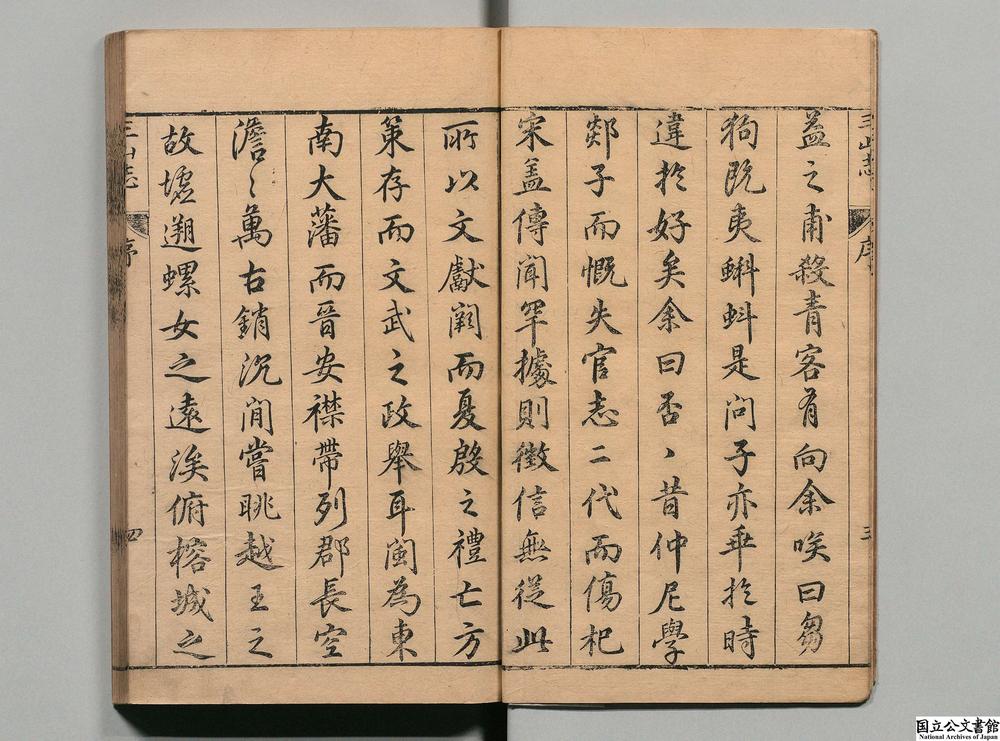 三山志 序 三
益之甫殺青客有向余唉曰芻
狗既夷蝌蚪是问子亦乖於時
違於好矣余曰否丶昔仲尼學
郯子而慨失官志二代而傷杞
宋盖傳闻罕據則徵信無從此
所以文獻阙而夏殷之禮亡方
策存而文武之政舉耳闽為東
南大藩而晉安襟帶列郡長空
澹〻萬古銷沉间嘗眺越王之
故墟遡螺女之遠涘俯榕城之
三山志 序 四
国立公文書館
National Archives of Japan